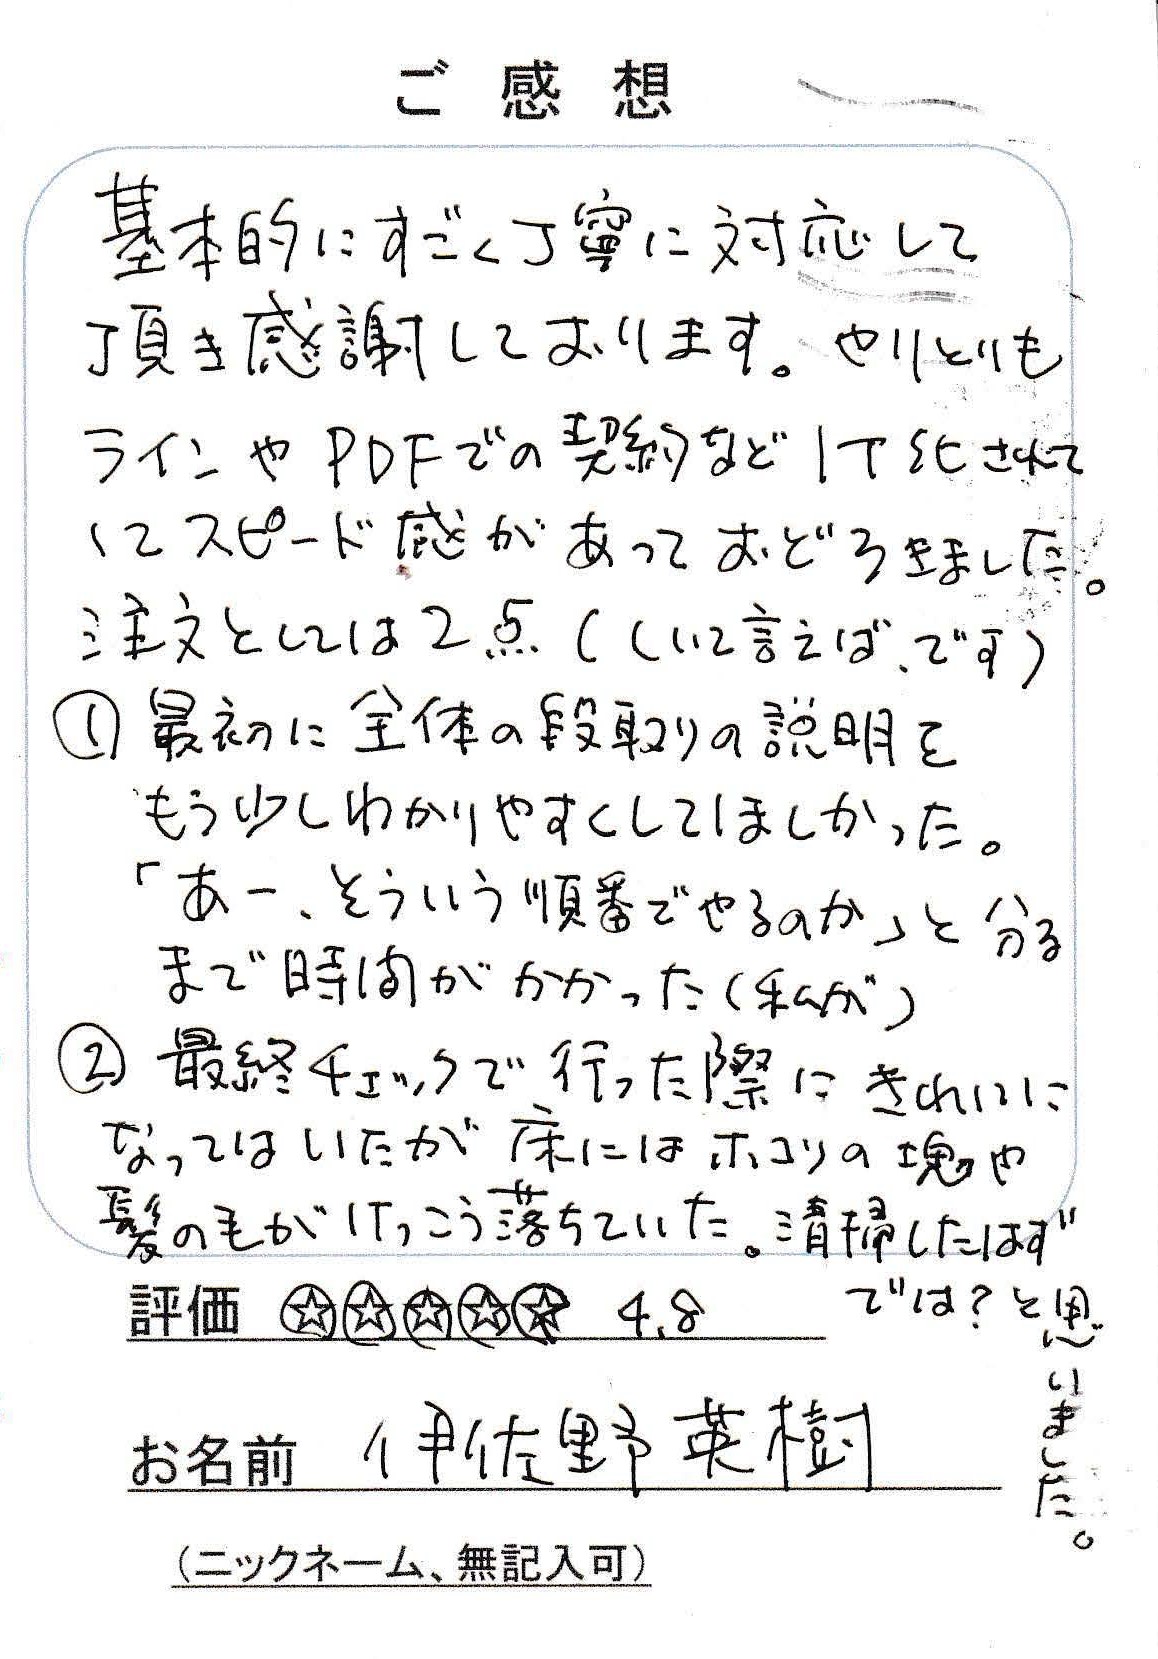 ご感想
基本的にすごく丁寧に対応して
頂き感謝しております。やりとりも
ラインやPDFでの契約などIT化されて
いてスピード感があっておどろきました。
注文としては2点(しいて言えば、です)
① 最初に全体の段取りの説明を
もう少しわかりやすくしてほしかった。
「あー、そういう順番でやるのか」と分る
まで時間がかかった(私が)
② 最終チェックで行った際にきれいに
なってはいたが床にはホコリの塊や
髪の毛がけっこう落ちていた。清掃したはず
では?と思いました。
評価 ☆☆☆☆☆ 4.8
お名前 伊佐野英樹
(ニックネーム、無記入可)